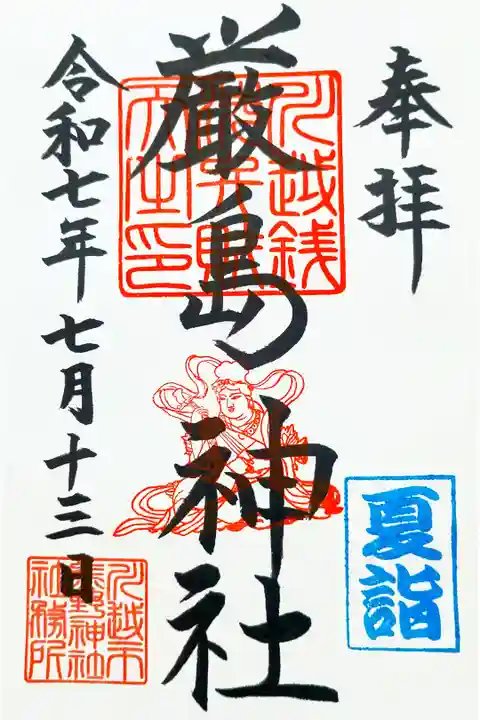 奉拝
夏詣
厳島神社
川越銭
令和七年七月十三日
川越市
熊野神社
社務所